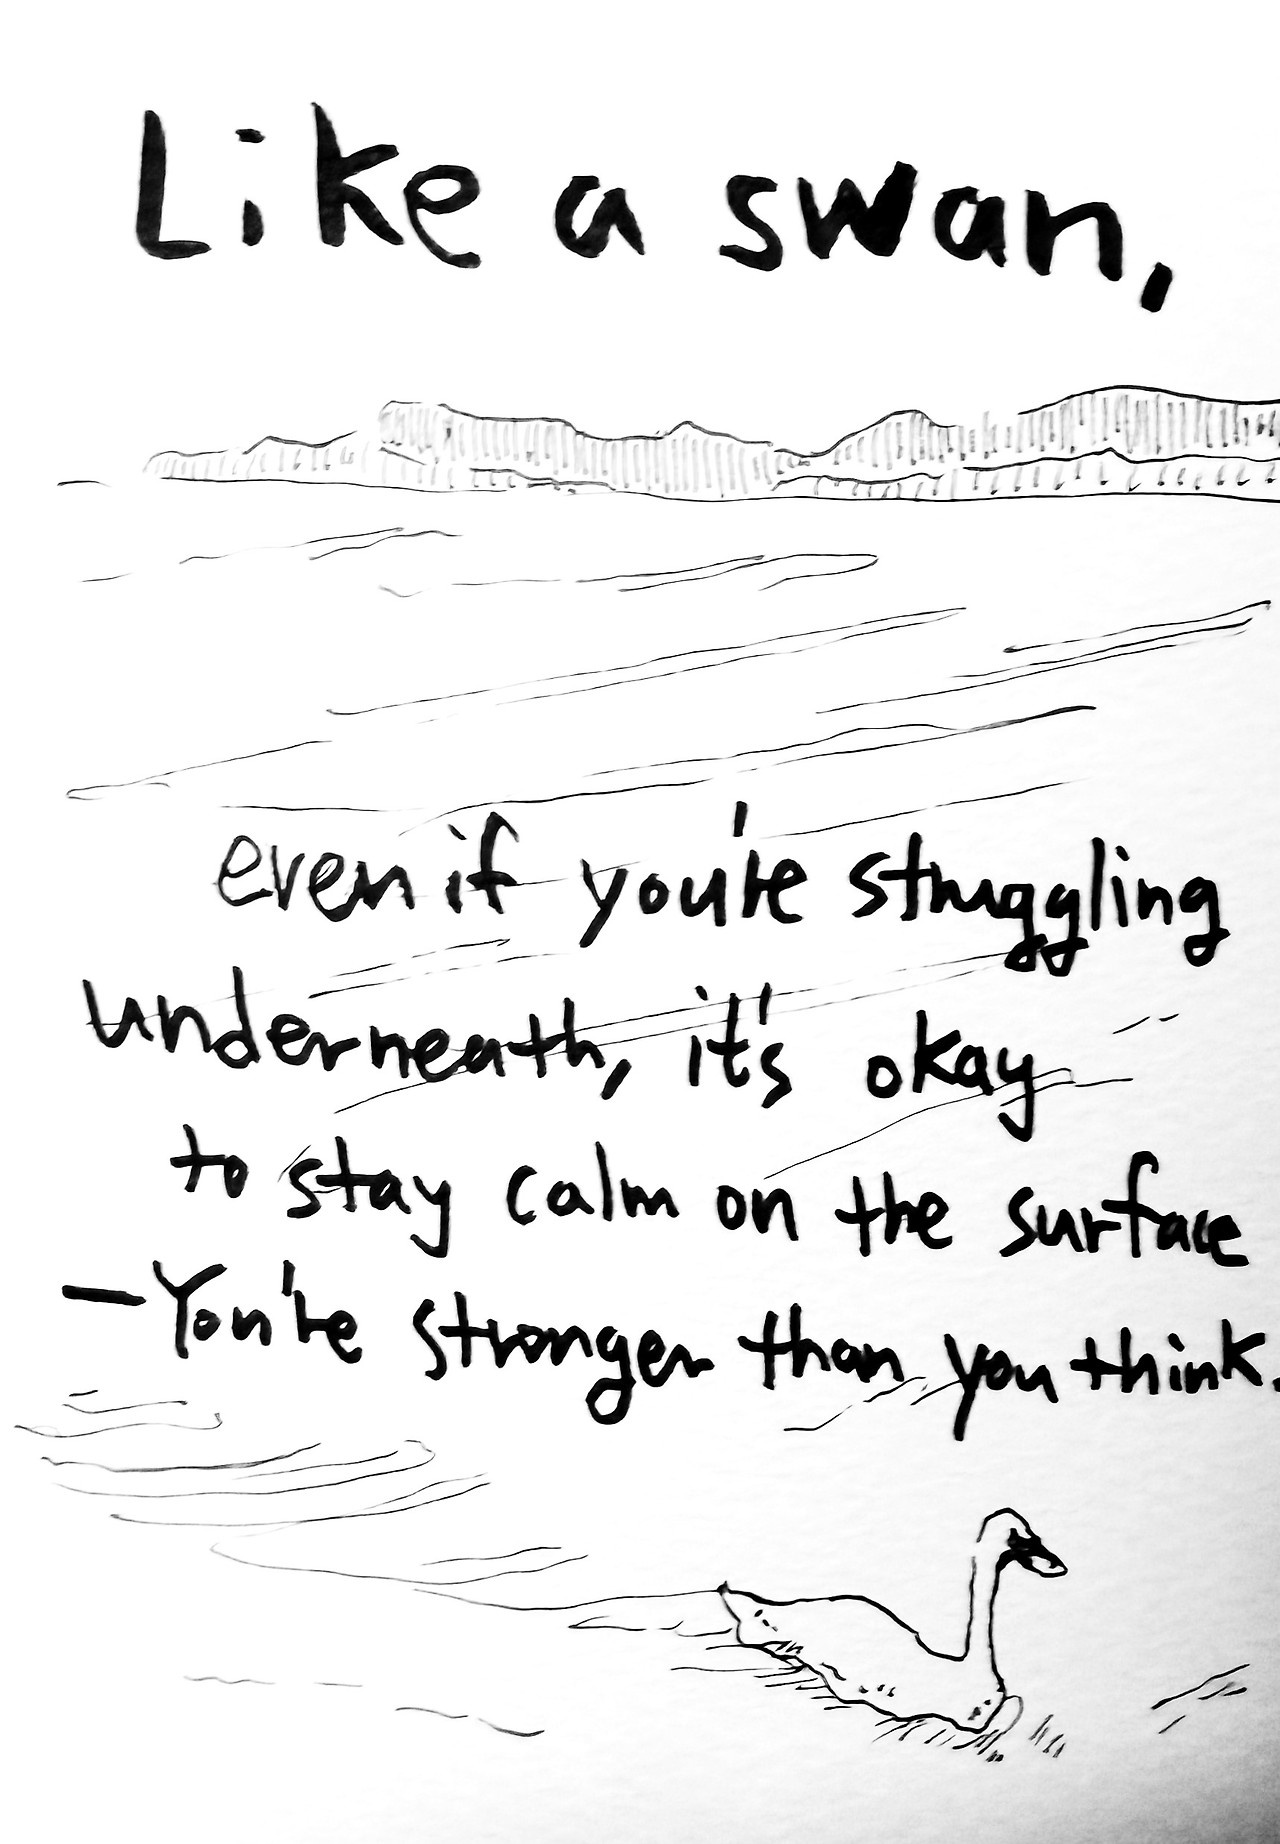 Like a swan,
even if you're struggling
underneath, it's okay
to stay calm on the surface
—You're stronger than you think.